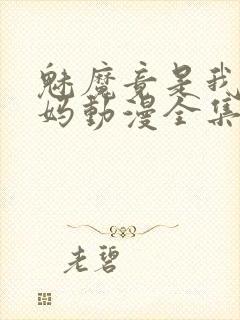 魅魔竟是我
妈動漫全集
老碧